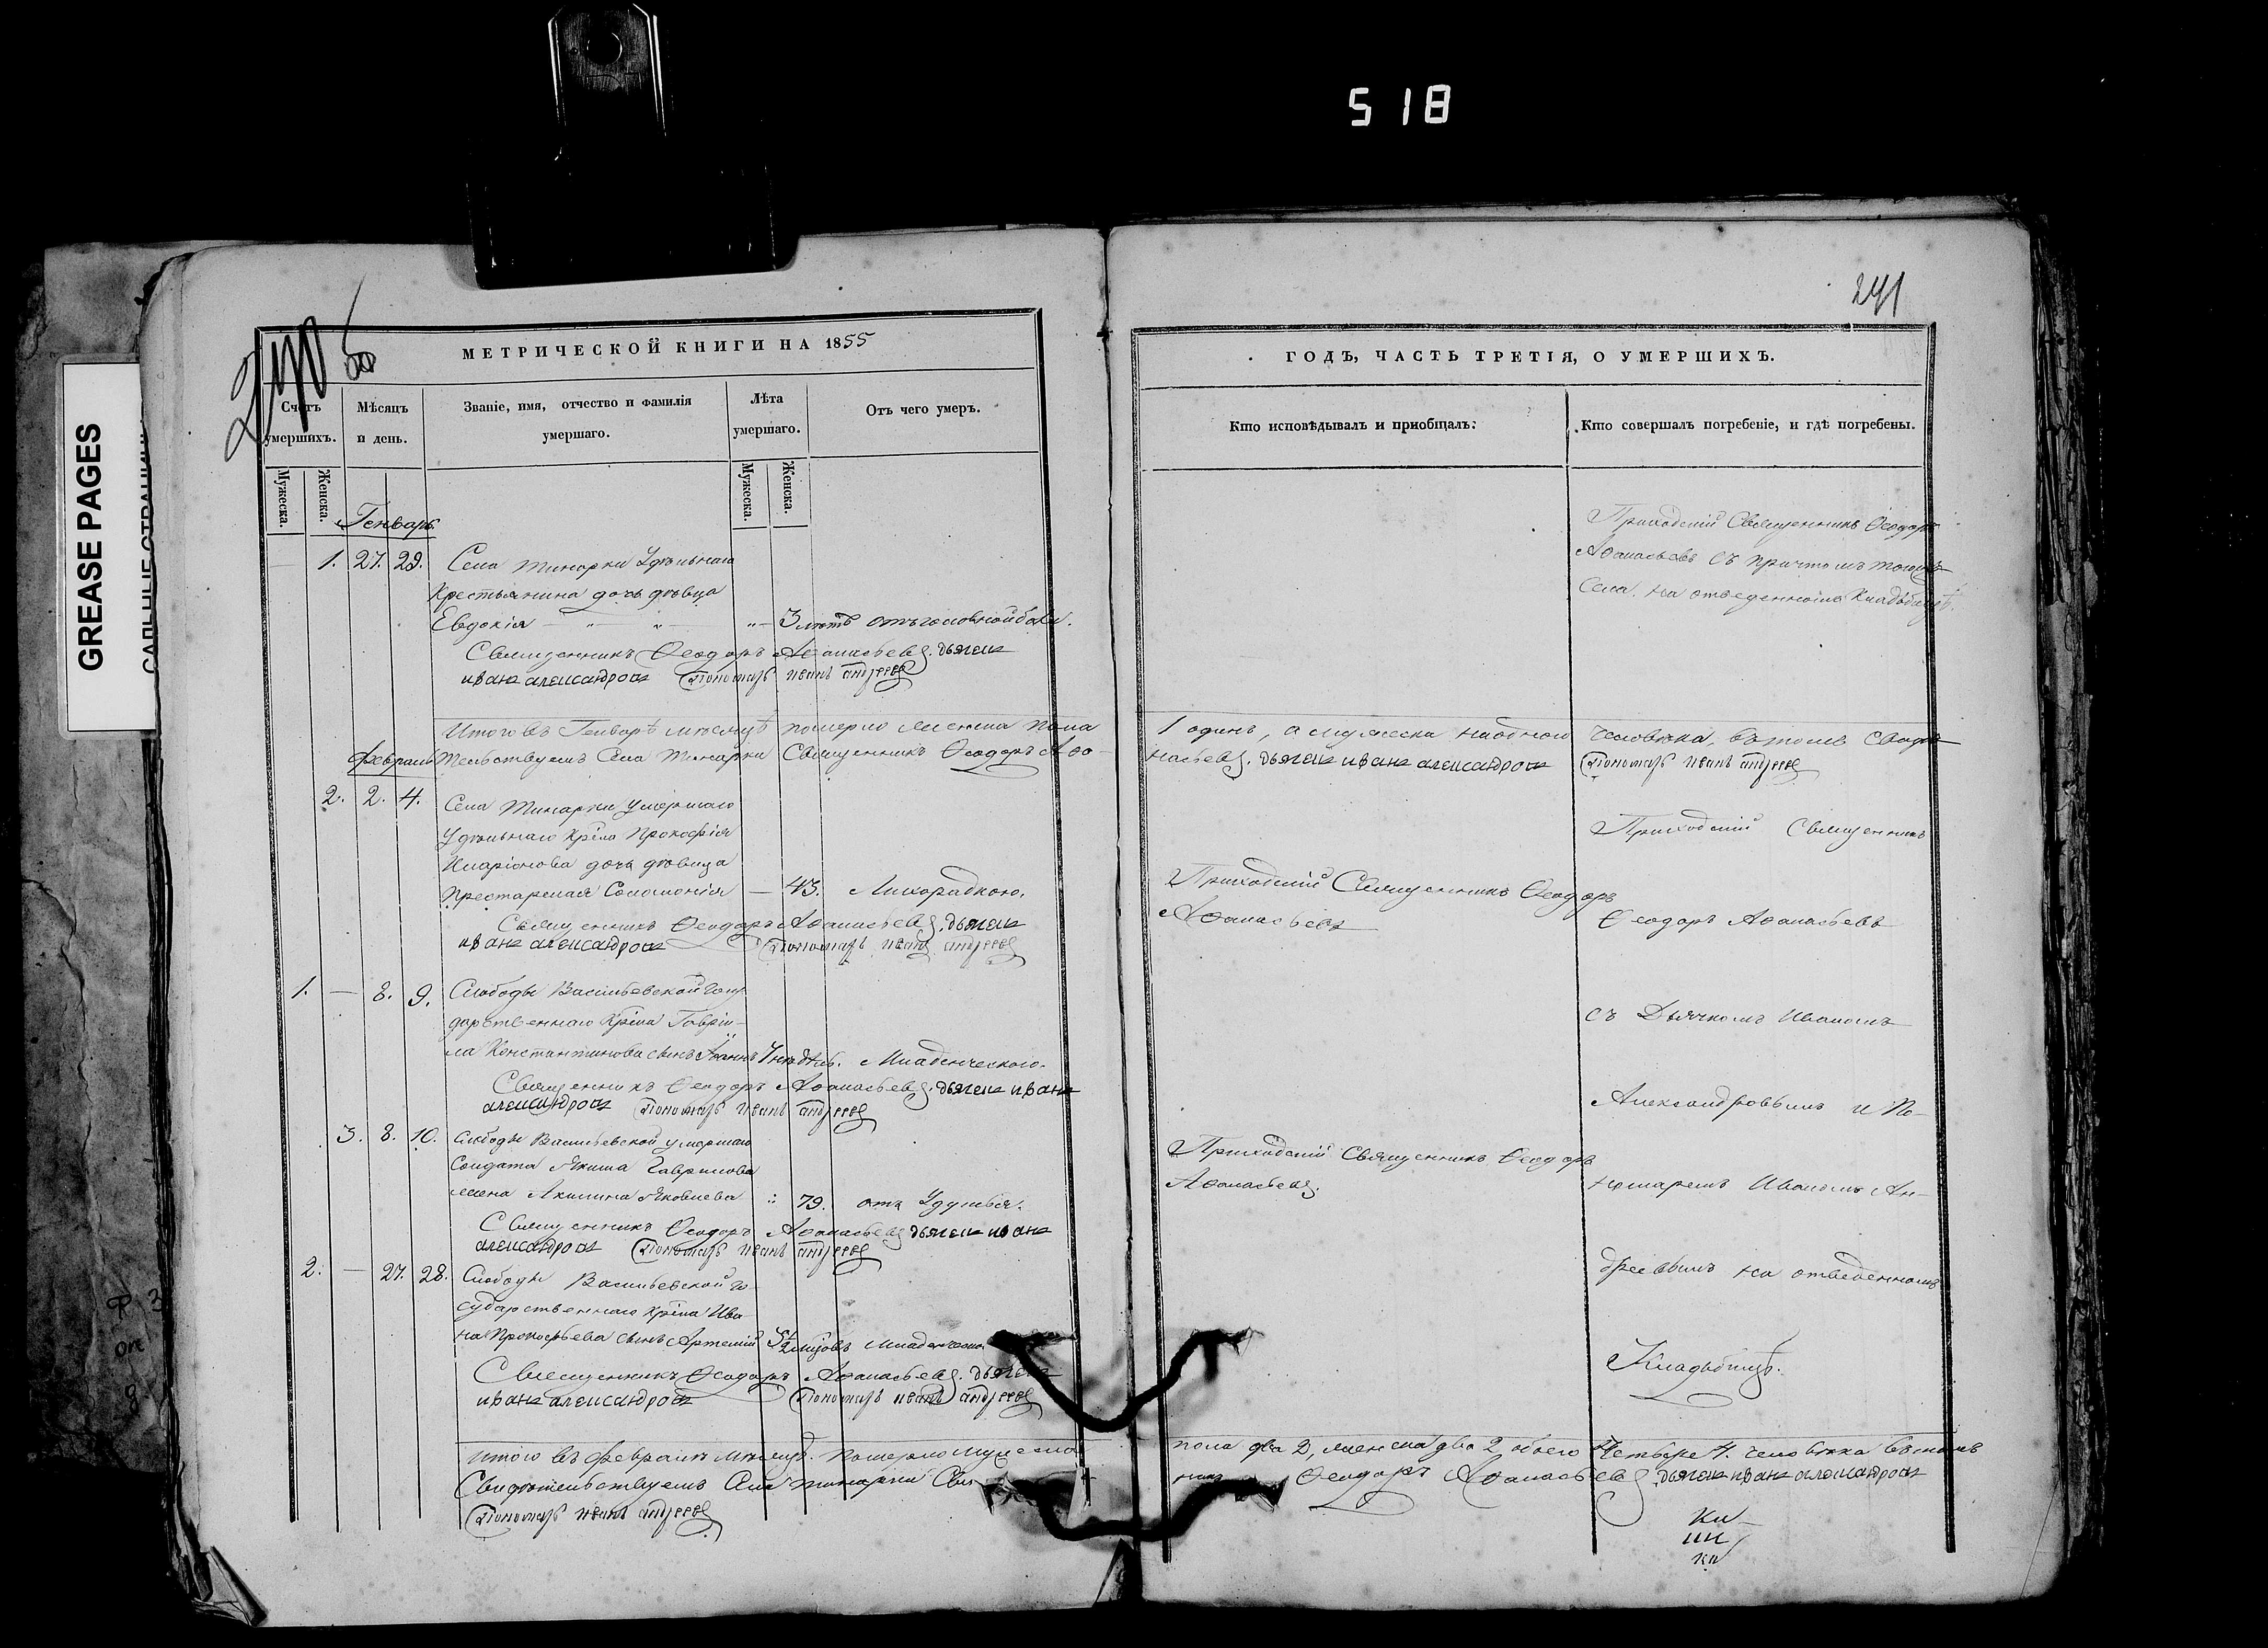 518
GREASE PAGES
САЛЬНЫЕ СТРАНИЦЫ
240 об
241
МЕТРИЧЕСКОЙ КНИГИ НА 1855
Счетъ умершихъ.
Мѣсяцъ и день.
Званіе, имя, отчество и фамилія умершаго.
Лѣта умершаго.
Отъ чего умеръ.
Мужеска.
Женска.
Мужеска.
Женска.
Генварь.
1. 27. 29. Села Тинарки Удѣльнаго
Крестьянина дочь дѣвица
Евдокія 3 лѣтъ отъ головной боли.
Священникъ Ѳеодоръ Аѳанасьевъ. дьячекъ
иванъ александровъ Пономарь иванъ андреевъ
Итого въ Генварѣ мѣсяцѣ померло женска пола
Февраль
тельствуемъ Села Тинарки Священникъ Ѳеодоръ Аѳа-
2. 2. 4. Села Тинарки умершаго
Удѣльнаго Крѣна Прокофія
Иларіонова дочь дѣвица
престарелая Соломонія — 43. Лихорадкою.
Священникъ Ѳеодоръ Аѳанасьевъ. дьячекъ
иванъ александровъ Пономарь иванъ андреевъ
1. — 8. 9. Слободы Васильевской Госу-
дарственнаго Крѣна Гаврі-
ла Константинова сынъ 7 Младенческого.
Священникъ Ѳеодоръ Аѳанасьевъ. дьячекъ иванъ
александровъ Пономарь иванъ андреевъ
3. 8. 10. Слободы Васильевской умершаго
Солдата Якима Гаврилова
жена Акилина Яковлева 79. отъ Удушья.
Священникъ Ѳеодоръ Аѳанасьевъ дьячекъ иванъ
александровъ Пономарь иванъ андреевъ
2. — 27. 28. Слободы Васильевской Го-
сударственнаго Крѣна Ива-
на Прокофьева сынъ Артемій
Священникъ Ѳеодоръ Аѳанасьевъ. дьячекъ
иванъ александровъ Пономарь иванъ андреевъ
Итого въ Февралѣ мѣсяцѣ. померло мужеска
Свидѣтельствуемъ Села Тинарки
Пономарь иванъ андреевъ
ГОДЪ, ЧАСТЬ ТРЕТІЯ, О УМЕРШИХЪ.
Кто исповѣдывалъ и пріобщалъ:
Кто совершалъ погребеніе, и гдѣ погребены.
Приходскій Священникъ Ѳеодоръ
Аѳанасьевъ съ причтомъ тогожъ
Села. на отведенномъ Кладбищѣ.
1 одинъ, а мужеска ни одного человѣка, въ томъ свидѣ-
насьевъ. дьячекъ иванъ александровъ Пономарь иванъ андреевъ
Приходскій Священникъ
Приходскій Священникъ Ѳеодоръ
Аѳанасьевъ
Ѳеодоръ Аѳанасьевъ
съ Дьячкомъ Иваномъ
Александровымъ и По-
Приходскій Священникъ Ѳеодоръ
Аѳанасьевъ.
номаремъ Иваномъ Ан-
дреевымъ на отведенномъ
Кладбищѣ.
пола два 2, женска два 2 обоего Четыре 4. человѣка въ томъ
никъ Ѳеодоръ Аѳанасьевъ дьячекъ иванъ александровъ